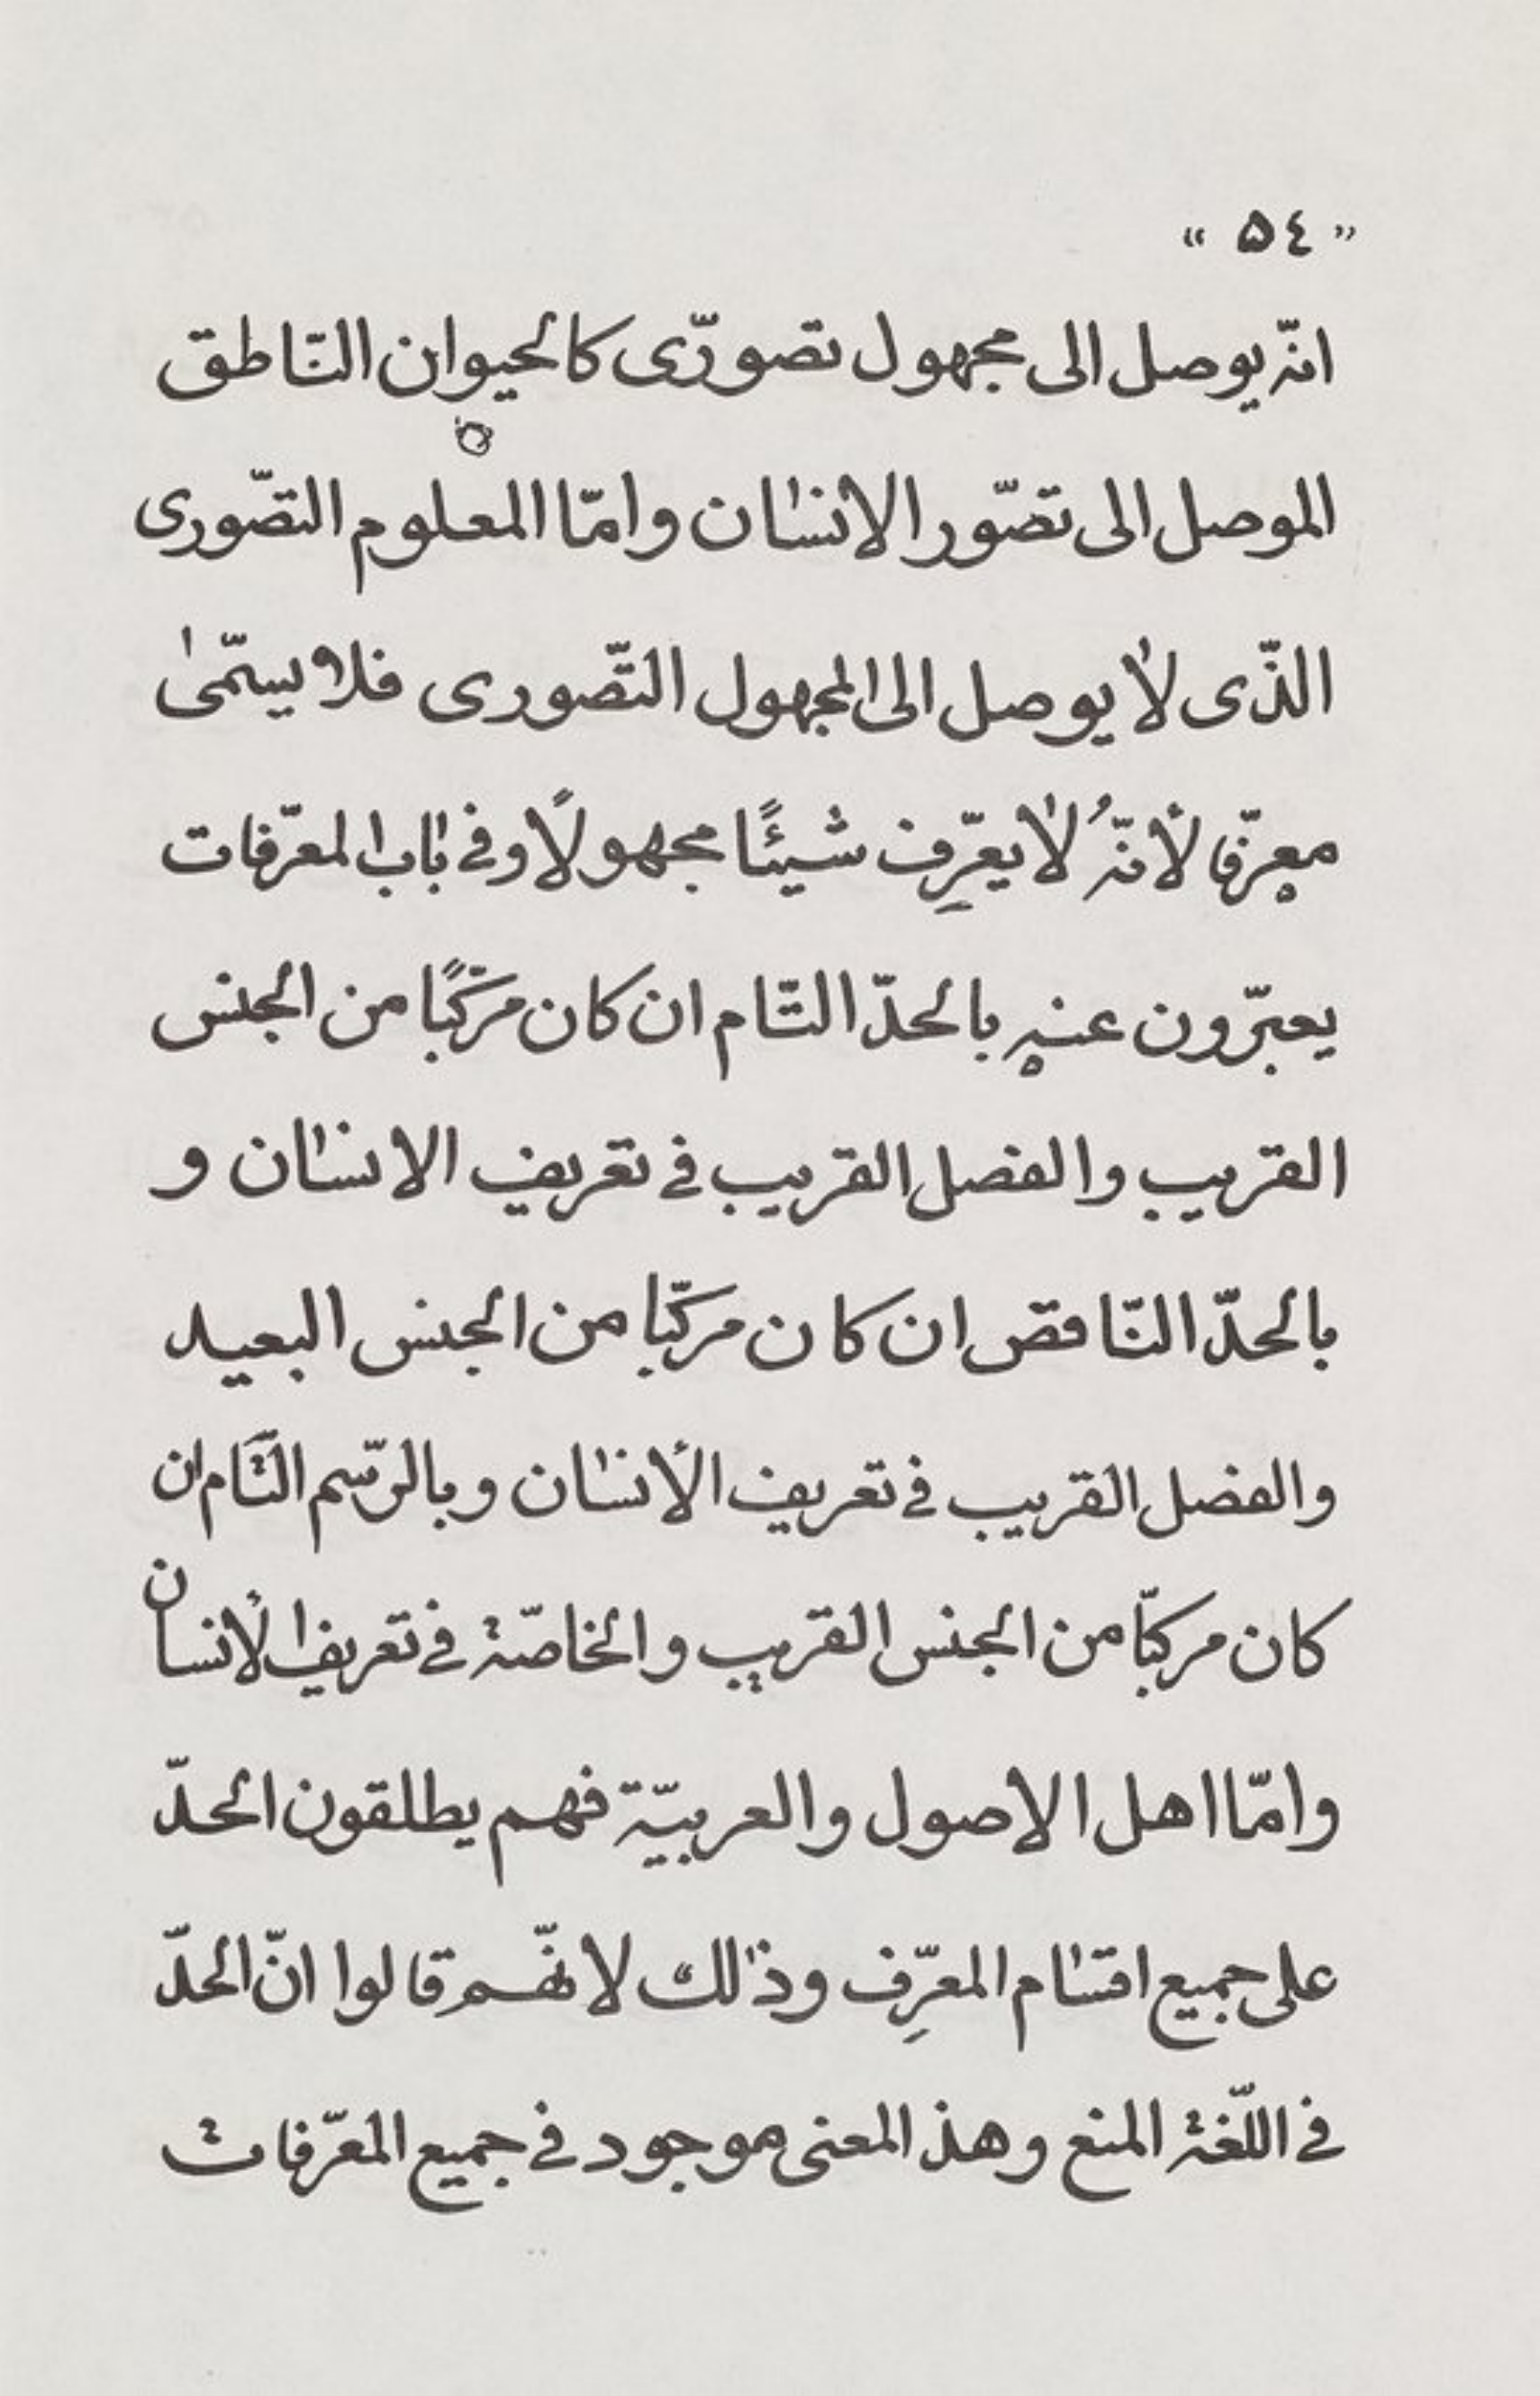 « ٥٤ »
انّه يوصل الى مجهول تصورّى كالحيوان النّاطق
الموصل الى تصّور الانسٰان وامّا المعلوم التصّورى
الذّى لاٰ يوصل الى المجهول التّصورى فلا يسمّىٰ
معرّفا لأنّهُ لاٰ يعرّف شيئًا مجهولًا وفى بٰاب المعرّفات
يعبّرون عنه بالحدّ التّام ان كان مركّبًا من الجنس
القريب والفصل القريب فى تعريف الانسٰان و
بالحدّ النّاقص ان كان مركّبا من الجنس البعيد
والفصل القريب فى تعريف الأنسٰان وبالرّسم التّام ان
كان مركبّا من الجنس القريب والخاصّة فى تعريف الأنسان
وامّا اهل الاصول والعربيّة فهم يطلقون الحدّ
على جميع اقسٰام المعرِّف وذٰلك لانهّم قالوا انّ الحدّ
فى اللّغة المنع وهذ المعنى موجود فى جميع المعرّفات